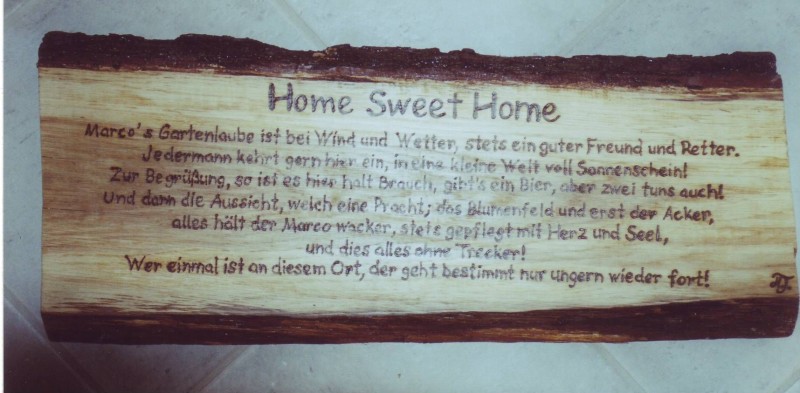 Home Sweet Home
Marco's Gartenlaube ist bei Wind und Wetter, stets ein guter Freund und Retter.
Jedermann kehrt gern hier ein, in eine kleine Welt voll Sonnenschein!
Zur Begrüßung, so ist es hier halt Brauch, gibt's ein Bier, aber zwei tuns auch!
Und dann die Aussicht, welch eine Pracht; das Blumenfeld und erst der Acker,
alles hält der Marco wacker, stets gepflegt mit Herz und Seel,
und dies alles ohne Trecker!
Wer einmal ist an diesem Ort, der geht bestimmt nur ungern wieder fort!